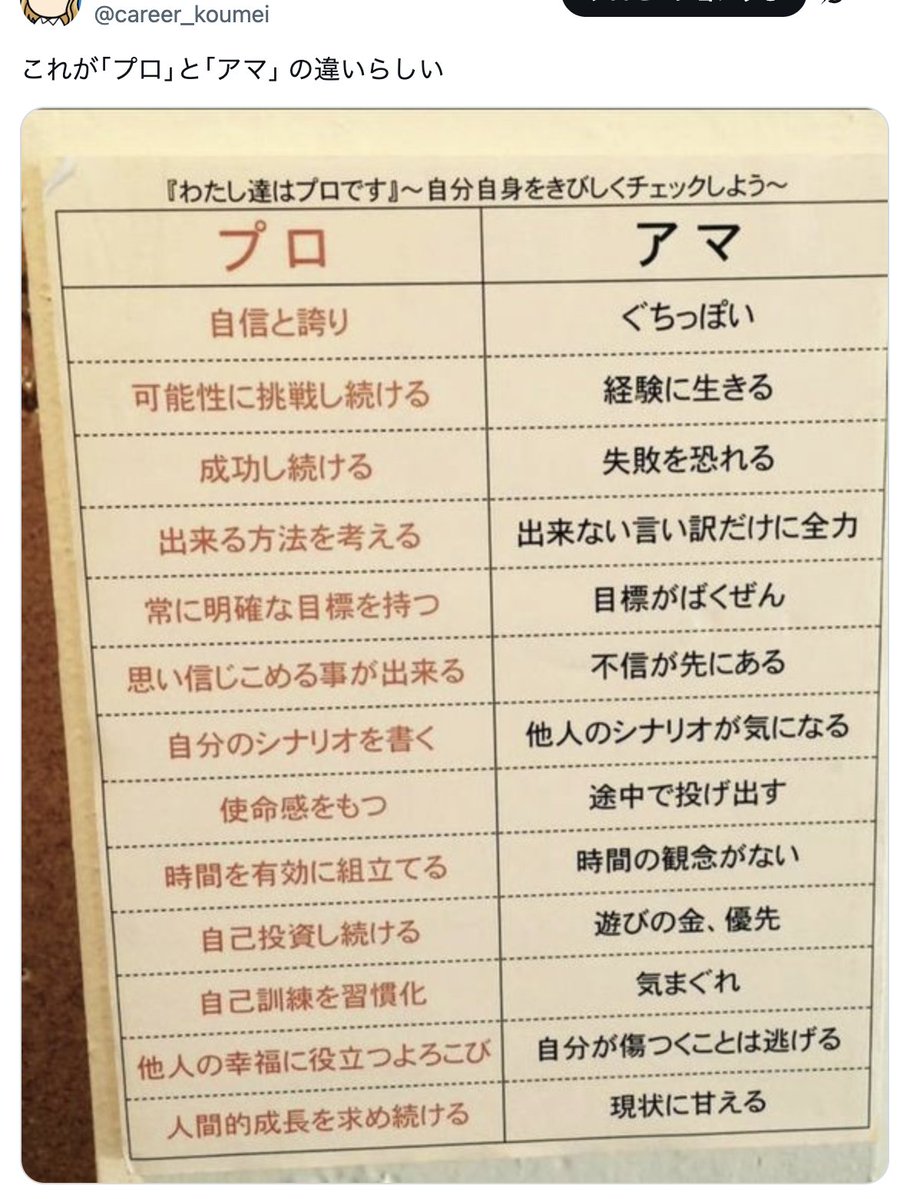 @career_koumei
これが「プロ」と「アマ」の違いらしい
『わたし達はプロです』～自分自身をきびしくチェックしよう～
プロ アマ
自信と誇り ぐちっぽい
可能性に挑戦し続ける 経験に生きる
成功し続ける 失敗を恐れる
出来る方法を考える 出来ない言い訳だけに全力
常に明確な目標を持つ 目標がばくぜん
思い信じこめる事が出来る 不信が先にある
自分のシナリオを書く 他人のシナリオが気になる
使命感をもつ 途中で投げ出す
時間を有効に組立てる 時間の観念がない
自己投資し続ける 遊びの金、優先
自己訓練を習慣化 気まぐれ
他人の幸福に役立つよろこび 自分が傷つくことは逃げる
人間的成長を求め続ける 現状に甘える